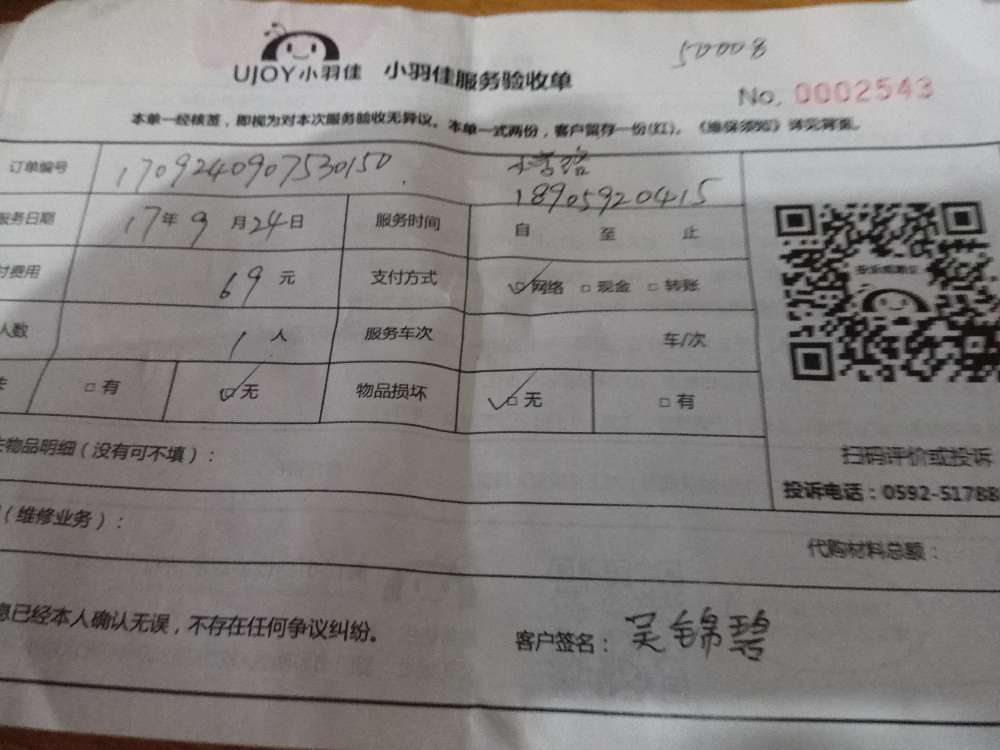 50008
UJOY小羽佳 小羽佳服务验收单
No. 0002543
本单一经核签，即视为对本次服务验收无异议。本单一式两份，客户留存一份(红)。《维保须知》详见背面。
订单编号 1709240907530150
18905920415
服务日期 17年9月24日 服务时间 自 至 止
付费用 69元 支付方式 ☑网络 □现金 □转账
人数 1人 服务车次 车/次
□有 ☑无 物品损坏 ☑无 □有
物品明细（没有可不填）：
扫码评价或投诉
投诉电话：0592-51788
（维修业务）：
代购材料总额：
息已经本人确认无误，不存在任何争议纠纷。
客户签名：吴锦碧